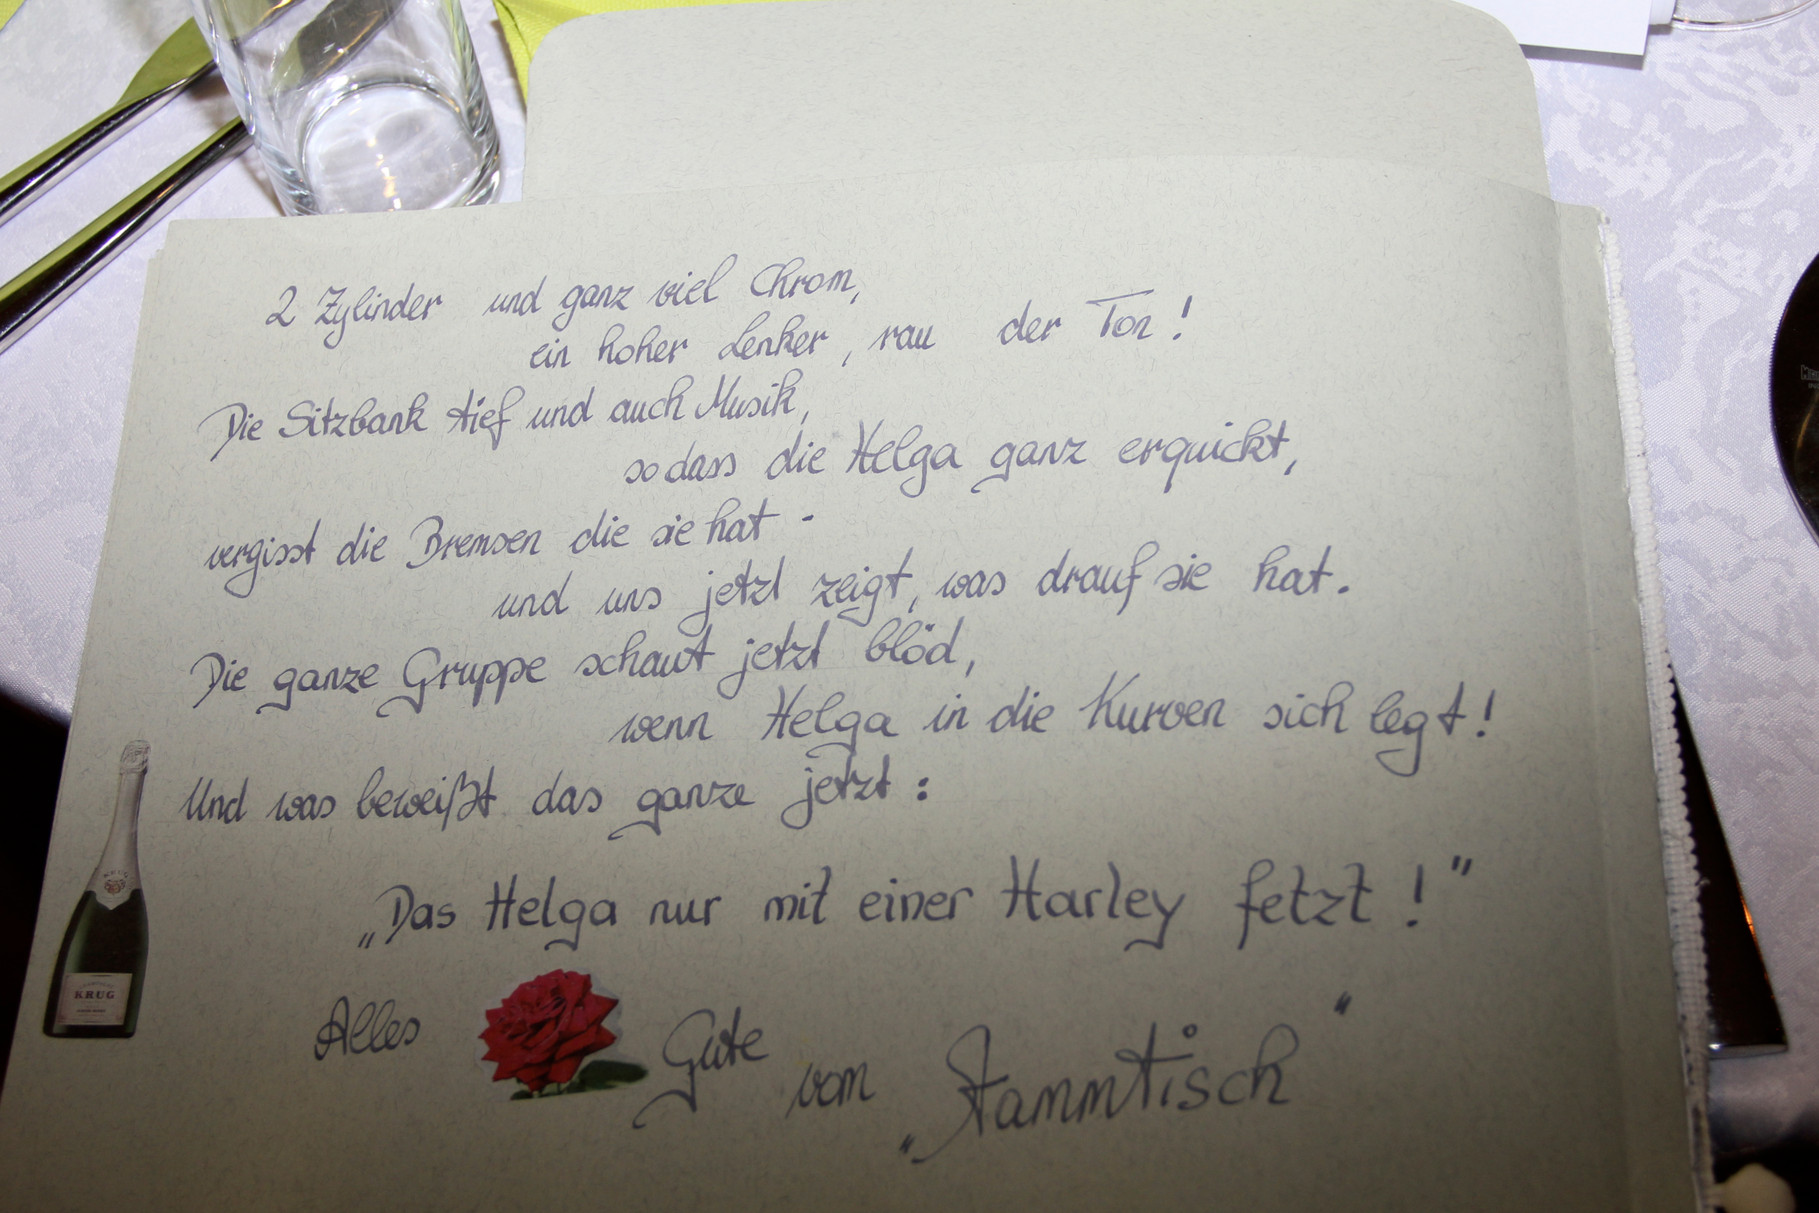 2 Zylinder und ganz viel Chrom,
ein hoher Lenker, rau der Ton!
Die Sitzbank tief und auch Musik,
sodass die Helga ganz erquickt,
vergisst die Bremsen die sie hat -
und uns jetzt zeigt, was drauf sie hat.
Die ganze Gruppe schaut jetzt blöd,
wenn Helga in die Kurven sich legt!
Und was beweißt das ganze jetzt:
„Das Helga nur mit einer Harley fetzt!"
Alles Gute vom „Stammtisch"
KRUG